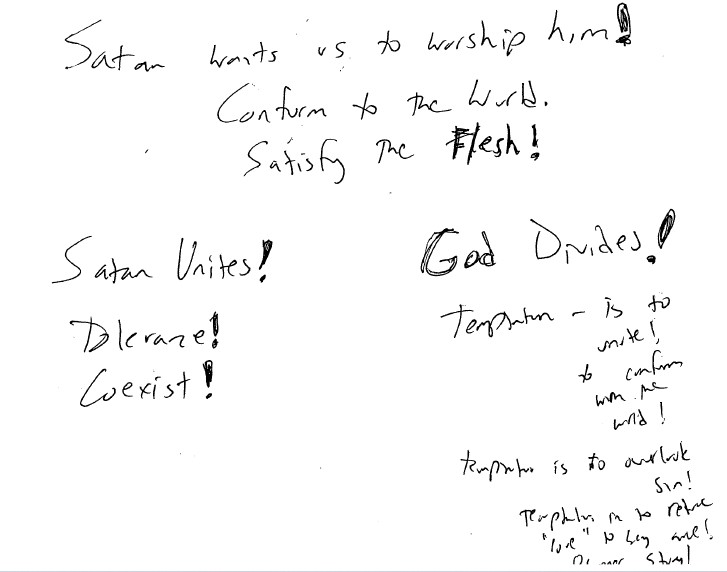 Satan wants us to worship him!
Conform to the World.
Satisfy the Flesh!
Satan Unites!
Tolerance!
Coexist!
God Divides!
Temptation - is to
unite!
to conform
with the
world!
temptation is to overlook
Sin!
Temptation is to
"love" to